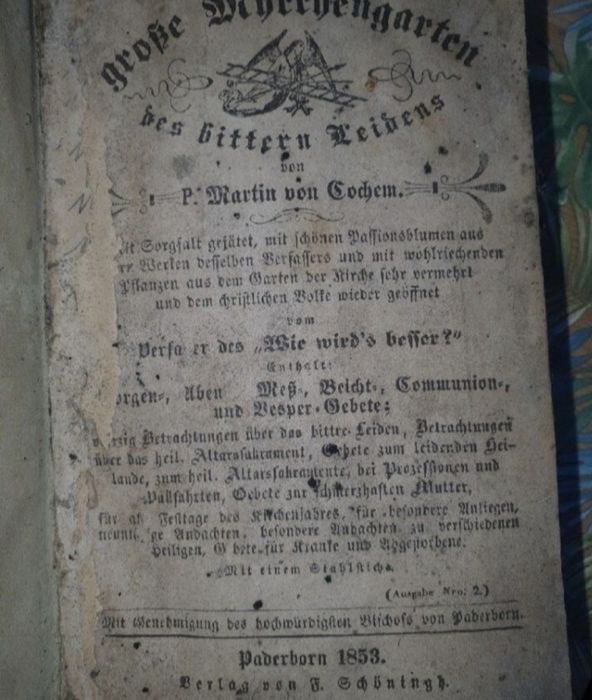 große Myrrhengarten
des bittern Leidens
von
P. Martin von Cochem.
Sorgfalt gejätet, mit schönen Passionsblumen aus
Werken desselben Verfassers und mit wohlriechenden
Pflanzen aus dem Garten der Kirche sehr vermehrt
und dem christlichen Volke wieder geöffnet
vom
Verfa er des „Wie wird's besser?"
Enthält:
orgen-, Aben Meß-, Beicht-, Communion-,
und Vesper-Gebete;
zig Betrachtungen über das bittre Leiden, Betrachtungen
über das heil. Altarssakrament, Gebete zum leidenden Hei-
lande, zum heil. Altarssakramente, bei Prozessionen und
Wallfahrten, Gebete zur schmerzhaften Mutter,
für al Festtage des Kirchenjahres, für besondere Anliegen,
neunt ge Andachten, besondere Andachten zu verschiedenen
Heiligen, G bete für Kranke und Abgestorbene.
Mit einem Stahlstich.
(Ausgabe Nro. 2.)
Mit Genehmigung des hochwürdigsten Bischofs von Paderborn.
Paderborn 1853.
Verlag von F. Schöningh.